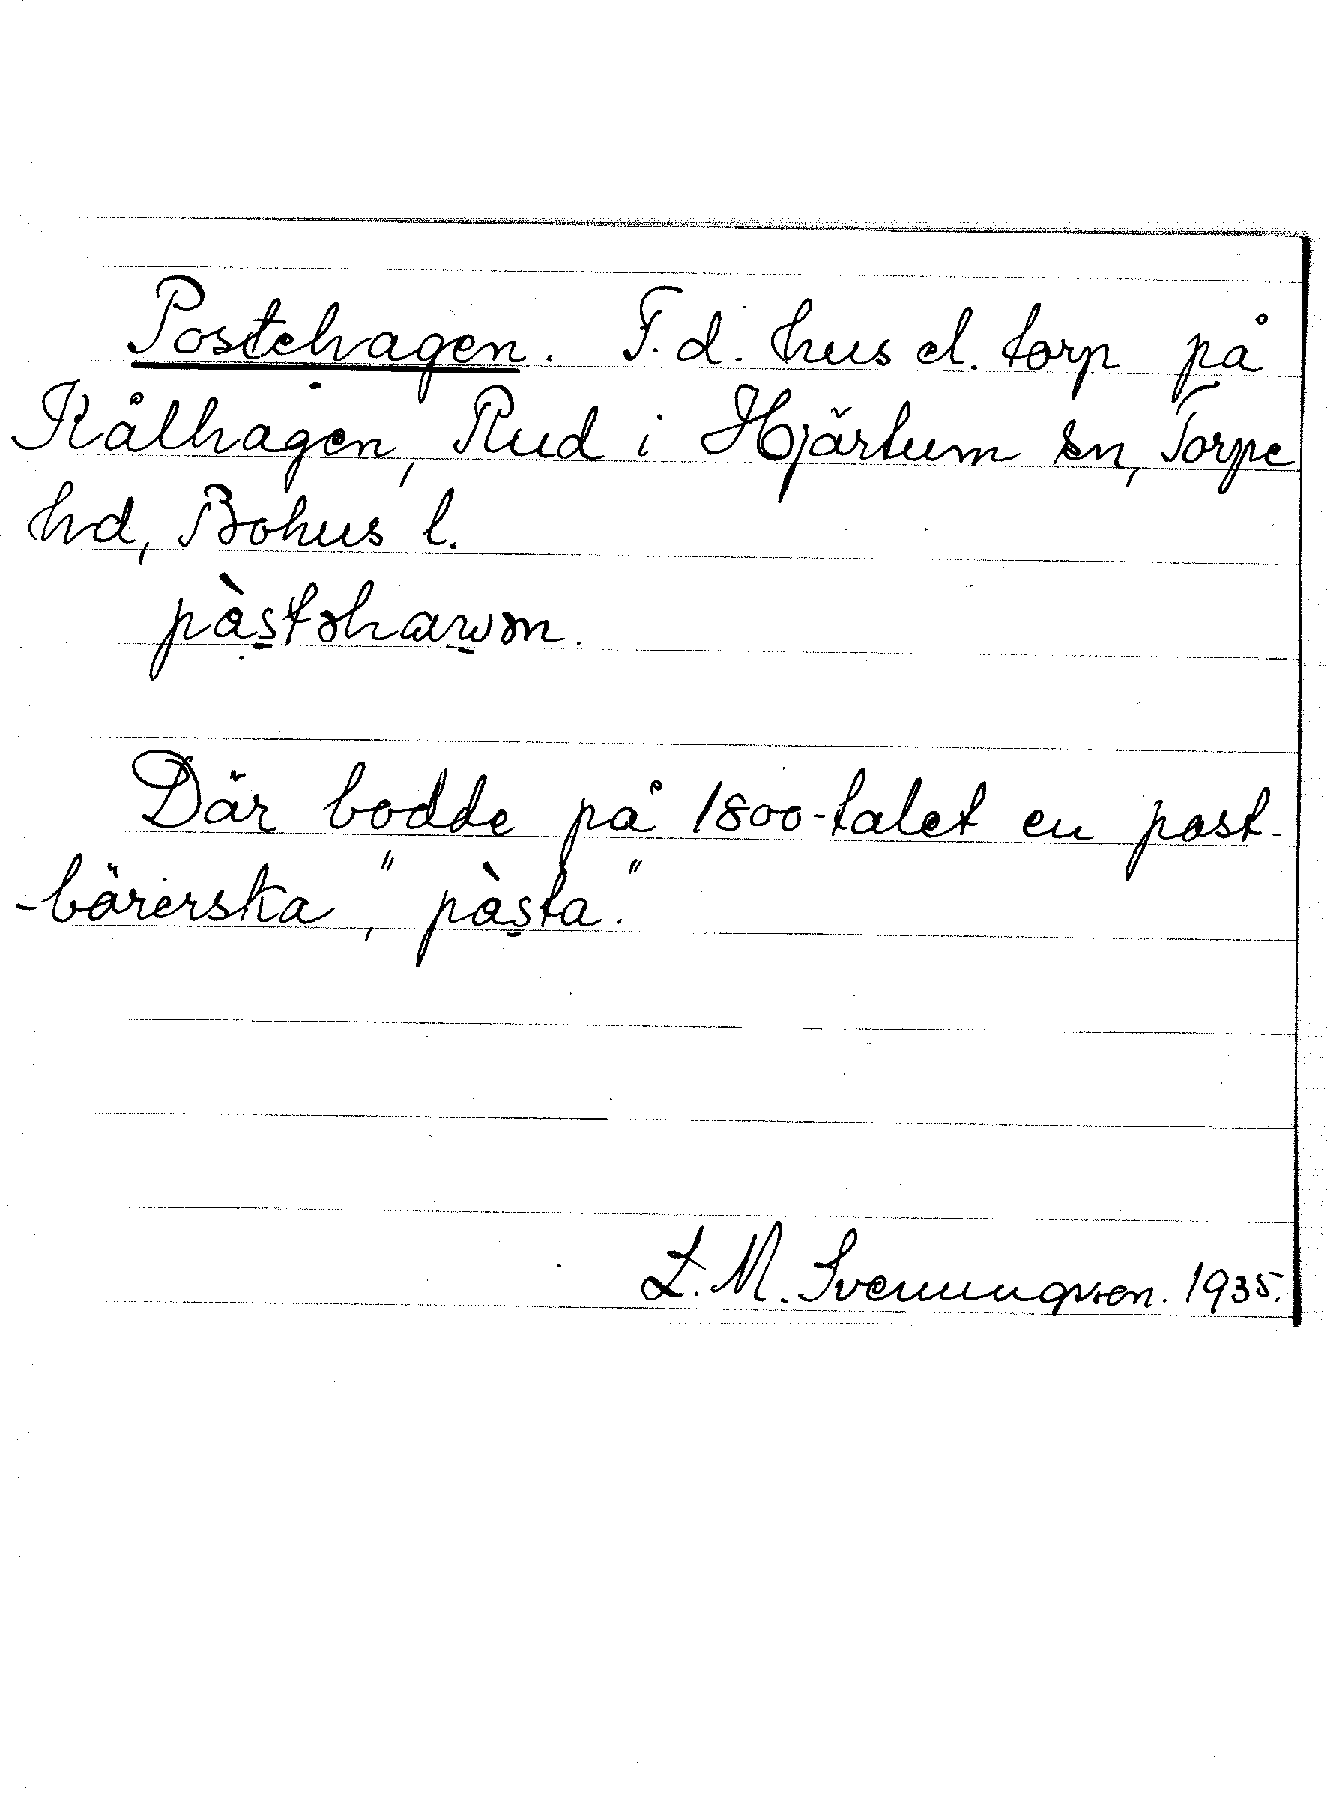 Postehagen. F.d. hus el. torp på
Kålhagen, Rud i Hjärtum sn, Torpe
hd, Bohus l.
pàstəhawən.
Där bodde på 1800-talet en post-
-bärerska, "pàsta."
L. M. Svenungsson. 1935.